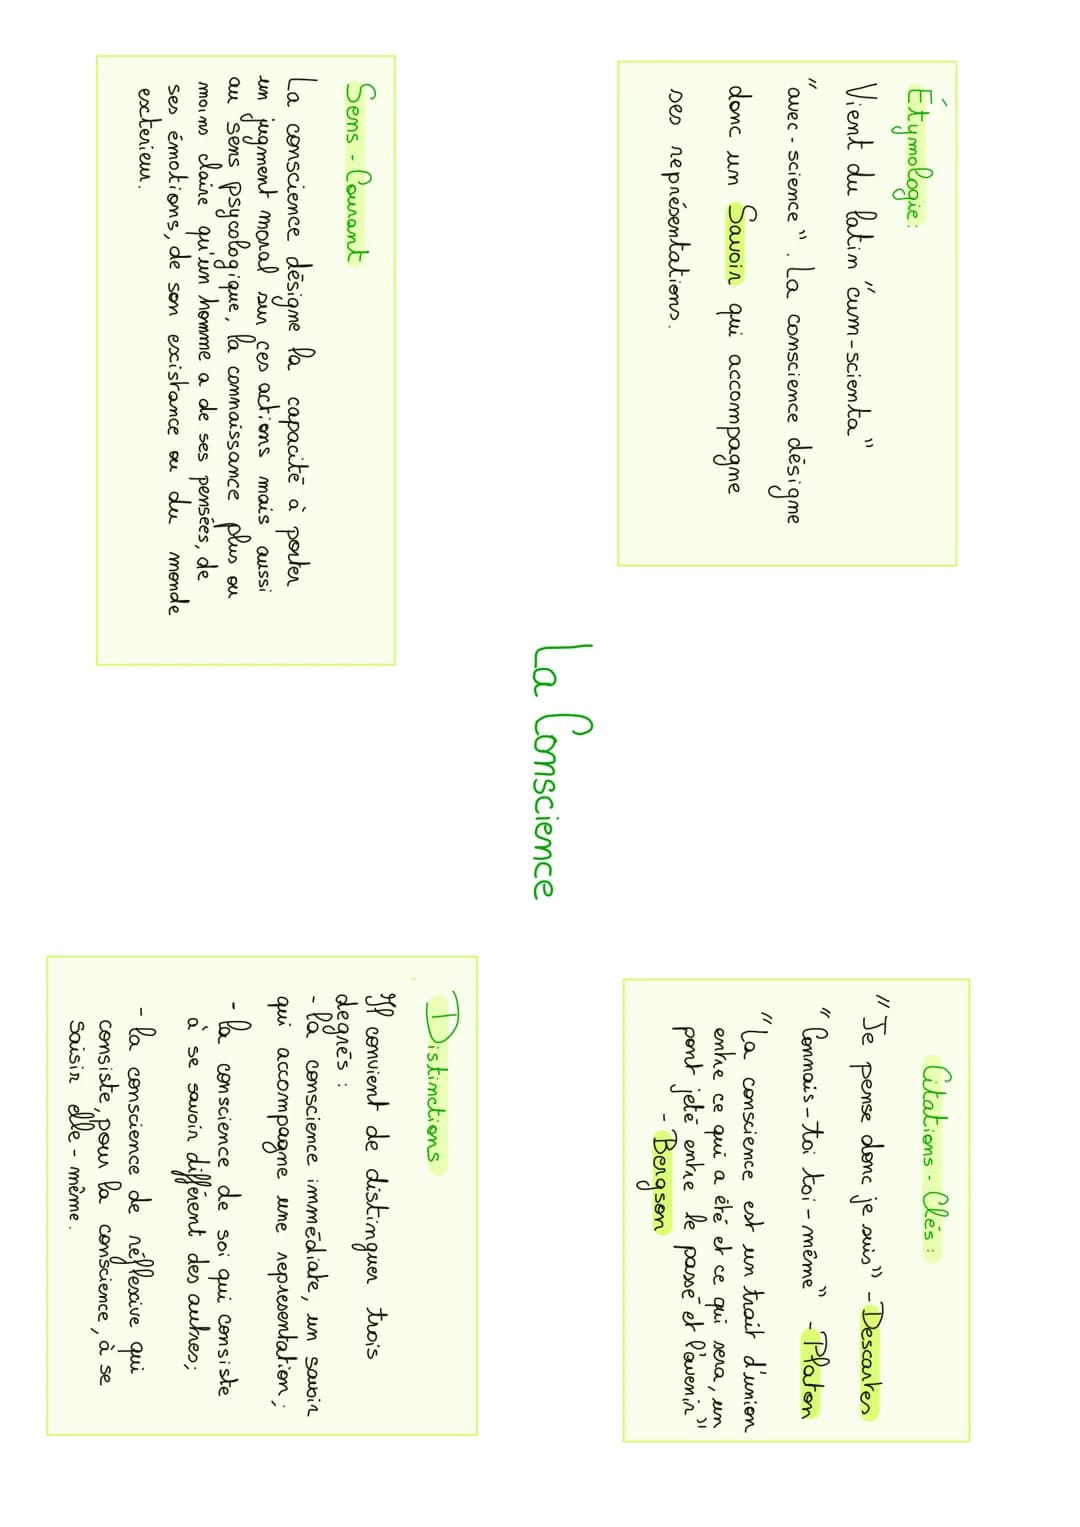 La Conscience
Étymologie:
Vient du latin "cum-scienta"
"avec-science". La conscience désigne
donc un Savoir qui accompagne
ses représentations.
Citations-Clés:
"Je pense donc je suis" -Descartes
"Connais-toi toi-même" -Platon
"La conscience est un trait d'union
entre ce qui a été et ce qui sera, un
pont jeté entre le passé et l'avenir"
- Bergson
Sens-Courant
La conscience désigne la capacité à porter
un jugment moral sur ces actions mais aussi
au sens psycologique, la connaissance plus ou
moins claire qu'un homme a de ses pensées, de
ses émotions, de son existance ou du monde
exterieur.
Distinctions
Il convient de distinguer trois
degrés:
- la conscience immédiate, un savoir
qui accompagne une representation;
- la conscience de soi qui consiste
à se savoir différent des autres;
- la conscience de réflexive qui
consiste, pour la conscience, à se
saisir elle-même.